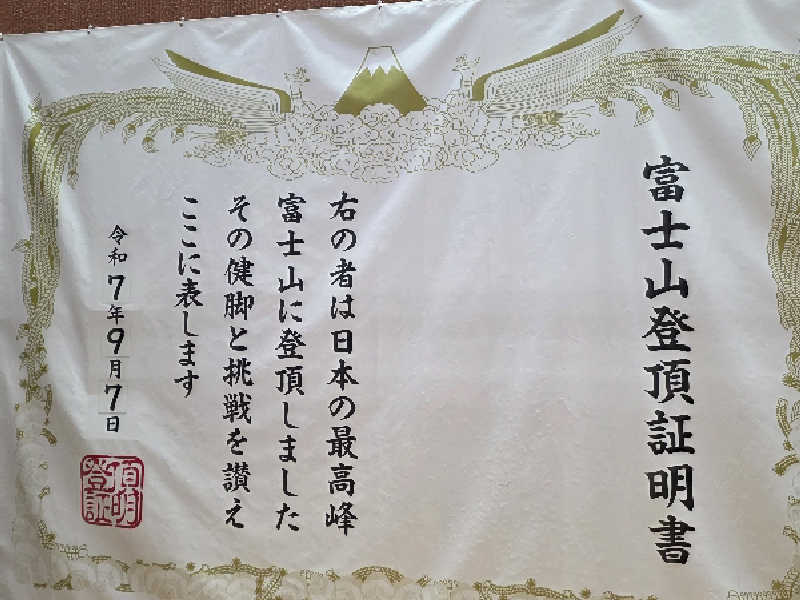 富士山登頂証明書
右の者は日本の最高峰
富士山に登頂しました
その健脚と挑戦を讃え
ここに表します
令和7年9月7日
頂明
登証